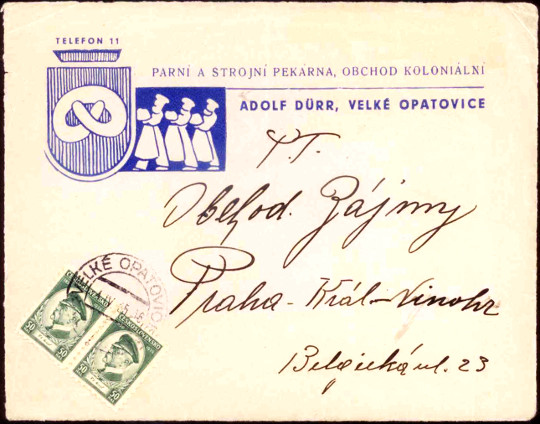 TELEFON 11
PARNÍ A STROJNÍ PEKÁRNA, OBCHOD KOLONIÁLNÍ
ADOLF DÜRR, VELKÉ OPATOVICE
P.T.
Obchod. Zájmy
Praha - Král-Vinohr
Belgická ul. 23
VELKÉ OPATOVICE
50
50